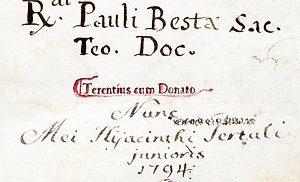 R.di Pauli Bestæ Sac.
Teo. Doc.
Terentius cum Donato
Nunc
Mei Hyacinthi Sertoli
junioris
1794.